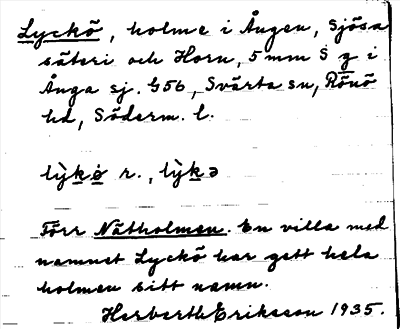 Lyckö, holme i Ången, Sjösa
säteri och Horn, 5 mm S g i
Ånga sj. G56, Svärta sn, Rönö
hd, Söderm. l.
lỳkø r., lỳkə
Förr Nätholmen. En villa med
namnet Lyckö har gett hela
holmen sitt namn.
Herberth Eriksson 1935.